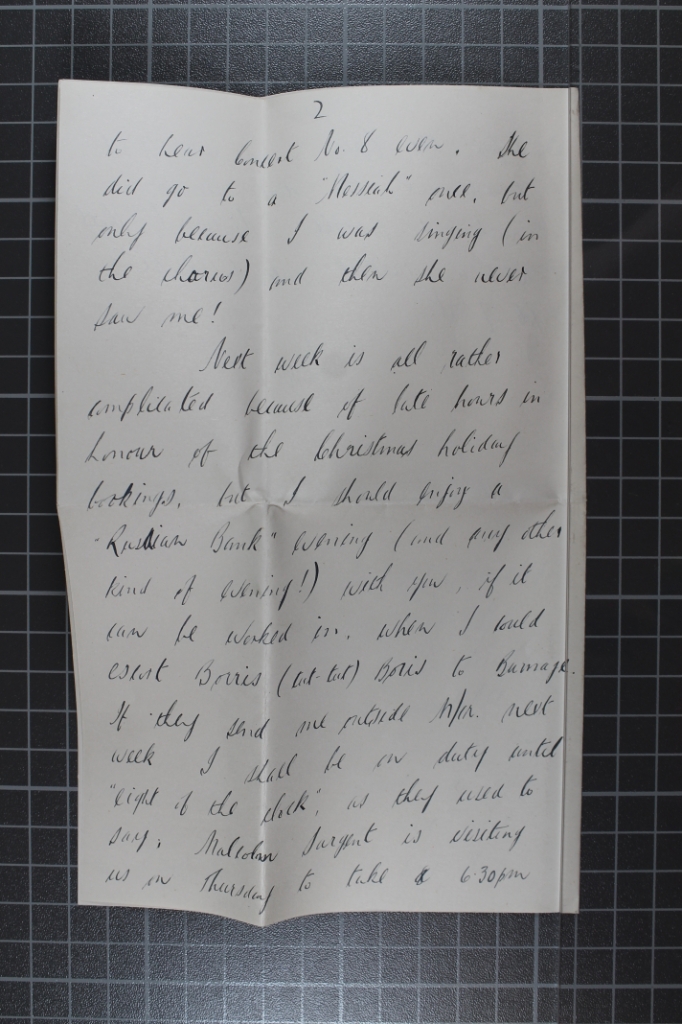 2
to hear Concert No. 8 even. She
did go to a "Messiah" once, but
only because I was singing (in
the chorus) and then she never
saw me!
Next week is all rather
complicated because of late hours in
honour of the Christmas holiday
bookings, but I should enjoy a
"Russian Bank" evening (and any other
kind of evening!) with you, if it
can be worked in, when I could
escort Borris (tut-tut) Boris to Burnage.
If they send me outside M/cr. next
week I shall be on duty until
"eight of the clock", as they used to
say. Malcolm Sargent is visiting
us on Thursday to take a 6.30pm